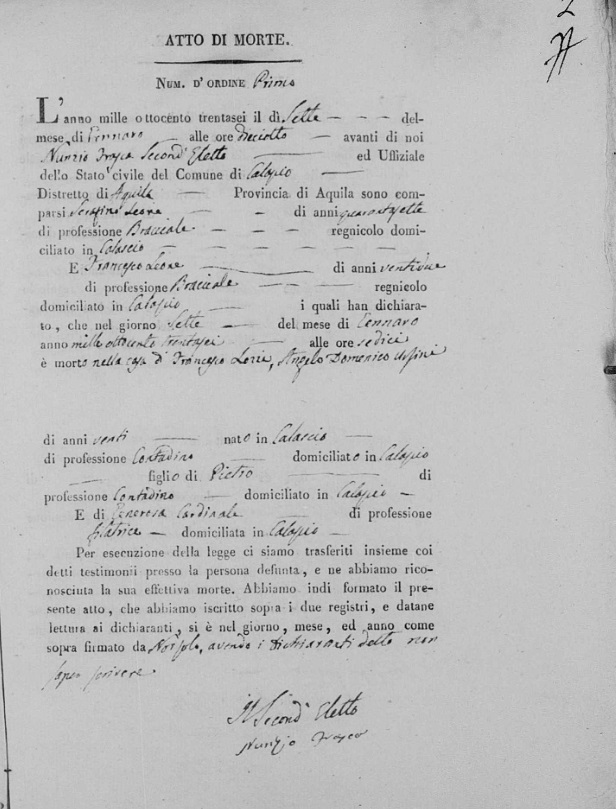 2
ATTO DI MORTE.
NUM. D' ORDINE Primo
L'anno mille ottocento trentasei il dì Sette — — — del-
mese di Gennaro — alle ore dieciotto — avanti di noi
Nunzio Second' Eletto — ed Uffiziale
dello Stato civile del Comune di Calascio —
Distretto di Aquila — Provincia di Aquila sono com-
parsi Serafino Leone — - di anni quarantasette
di professione Bracciale — — — regnicolo domi-
ciliato in Calascio — — — — — —
E Francesco Leone — di anni ventidue
di professione Bracciale — — regnicolo
domiciliato in Calascio — — i quali han dichiara-
to, che nel giorno Sette — del mese di Gennaro
anno mille ottocento trentasei — alle ore sedici
è morto nella casa di Francesco, Angelo Domenico
di anni venti — nato in Calascio —
di professione Contadino — domiciliato in Calascio
— figlio di Pietro — di
professione Contadino — domiciliato in Calascio —
E di Generosa Cardinale — di professione
filatrice — domiciliata in Calascio —
Per esecuzione della legge ci siamo trasferiti insieme coi
detti testimonii presso la persona defunta, e ne abbiamo rico-
nosciuta la sua effettiva morte. Abbiamo indi formato il pre-
sente atto, che abbiamo iscritto sopra i due registri, e datane
lettura ai dichiaranti, si è nel giorno, mese, ed anno come
sopra firmato da Noi solo, avendo i Dichiaranti detto non
saper scrivere
Il Second' Eletto
Nunzio